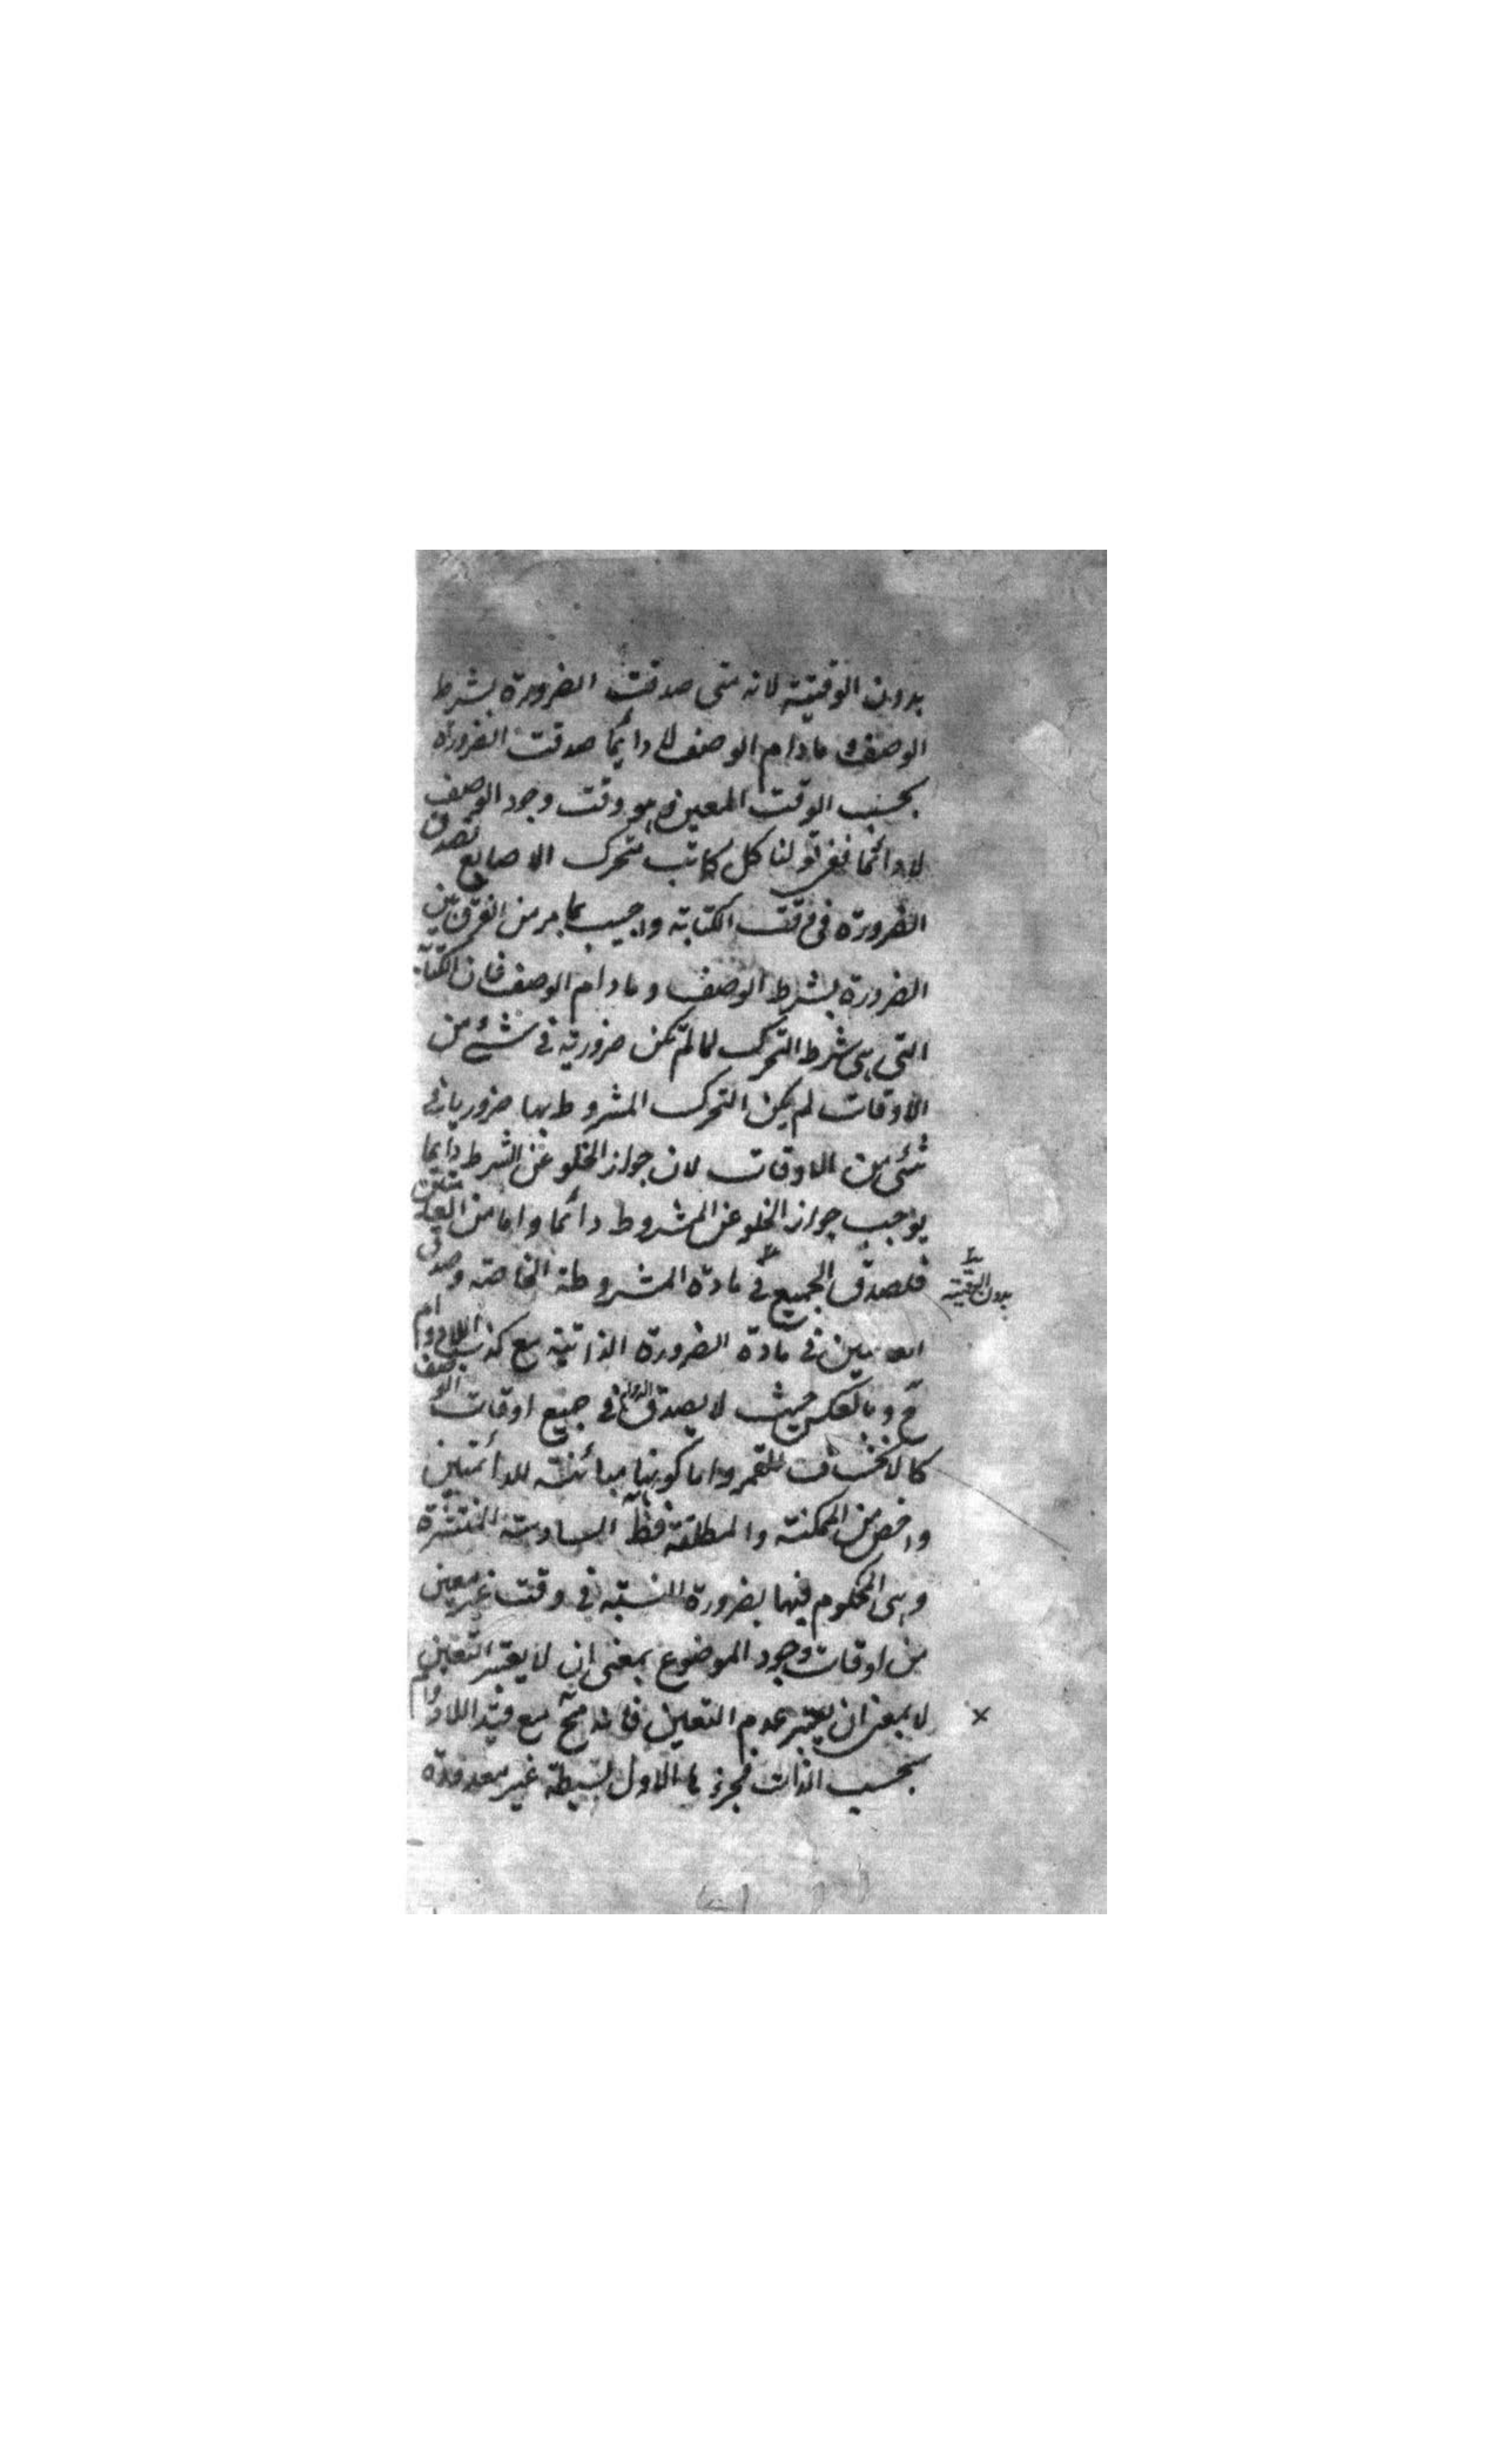 بدون الوقتية لانه متى صدقت الضرورة بشرط
الوصف و مادام الوصف لا دائما صدقت الضرورة
بحسب الوقت المعين و هو وقت وجود الوصف
لا دائما ففى قولنا كل كاتب متحرك الاصابع تصدق
الضرورة فى وقت الكتابة واجيب بما مر من الفرق بين
الضرورة بشرط الوصف و مادام الوصف فان الكتابة
التى هى شرط التحرك لما لم تكن ضرورية فى شئ من
الاوقات لم يكن التحرك المشروط بها ضروريا فى
شئ من الاوقات لان جواز الخلو عن الشرط دايما
يوجب جواز الخلو عن المشروط دائما واما من
فلصدق الجميع فى مادة المشروطة الخاصة وصدق
بدون الوقتية
فى مادة الضرورة الذاتية مع كذب اللادوام
ح وبالعكس حيث لا يصدق الدوام فى جميع اوقات الوصف
كالانخساف للقمر واما كونها مبائنة للدائمتين
واخص من الممكنة والمطلقة فظ السادسة المنتشرة
وهى المحكوم فيها بضرورة النسبة فى وقت غير معين
من اوقات وجود الموضوع بمعنى ان لا يعتبر التعين
لا بمعنى ان يعتبر عدم التعين فانه مح مع قيد اللادوام
بحسب الذات فجزءها الاول بسيطة غير معدودة